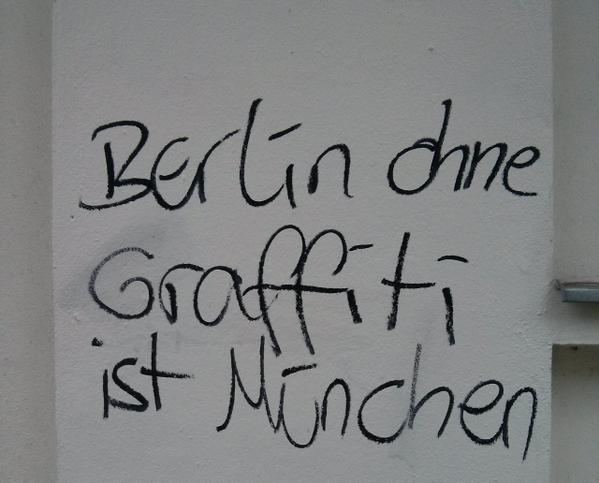 Berlin ohne
Graffiti
ist München